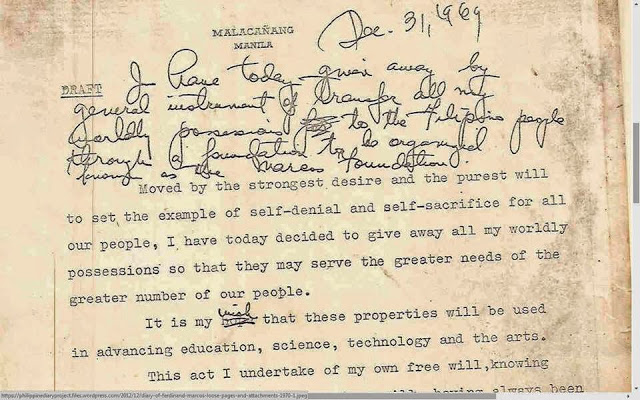 MALACAÑANG
MANILA
Dec. 31, 1969
DRAFT
I have today given away by
general instrument of transfer all my
worldly possessions to the Filipino people
through a foundation to be organized
known as the Marcos Foundation.
Moved by the strongest desire and the purest will
to set the example of self-denial and self-sacrifice for all
our people, I have today decided to give away all my worldly
possessions so that they may serve the greater needs of the
greater number of our people.
It is my wish that these properties will be used
in advancing education, science, technology and the arts.
This act I undertake of my own free will, knowing
will, having always been
https://philippinediaryproject.files.wordpress.com/2012/12/diary-of-ferdinand-marcos-loose-pages-and-attachments-1970-1.jpeg